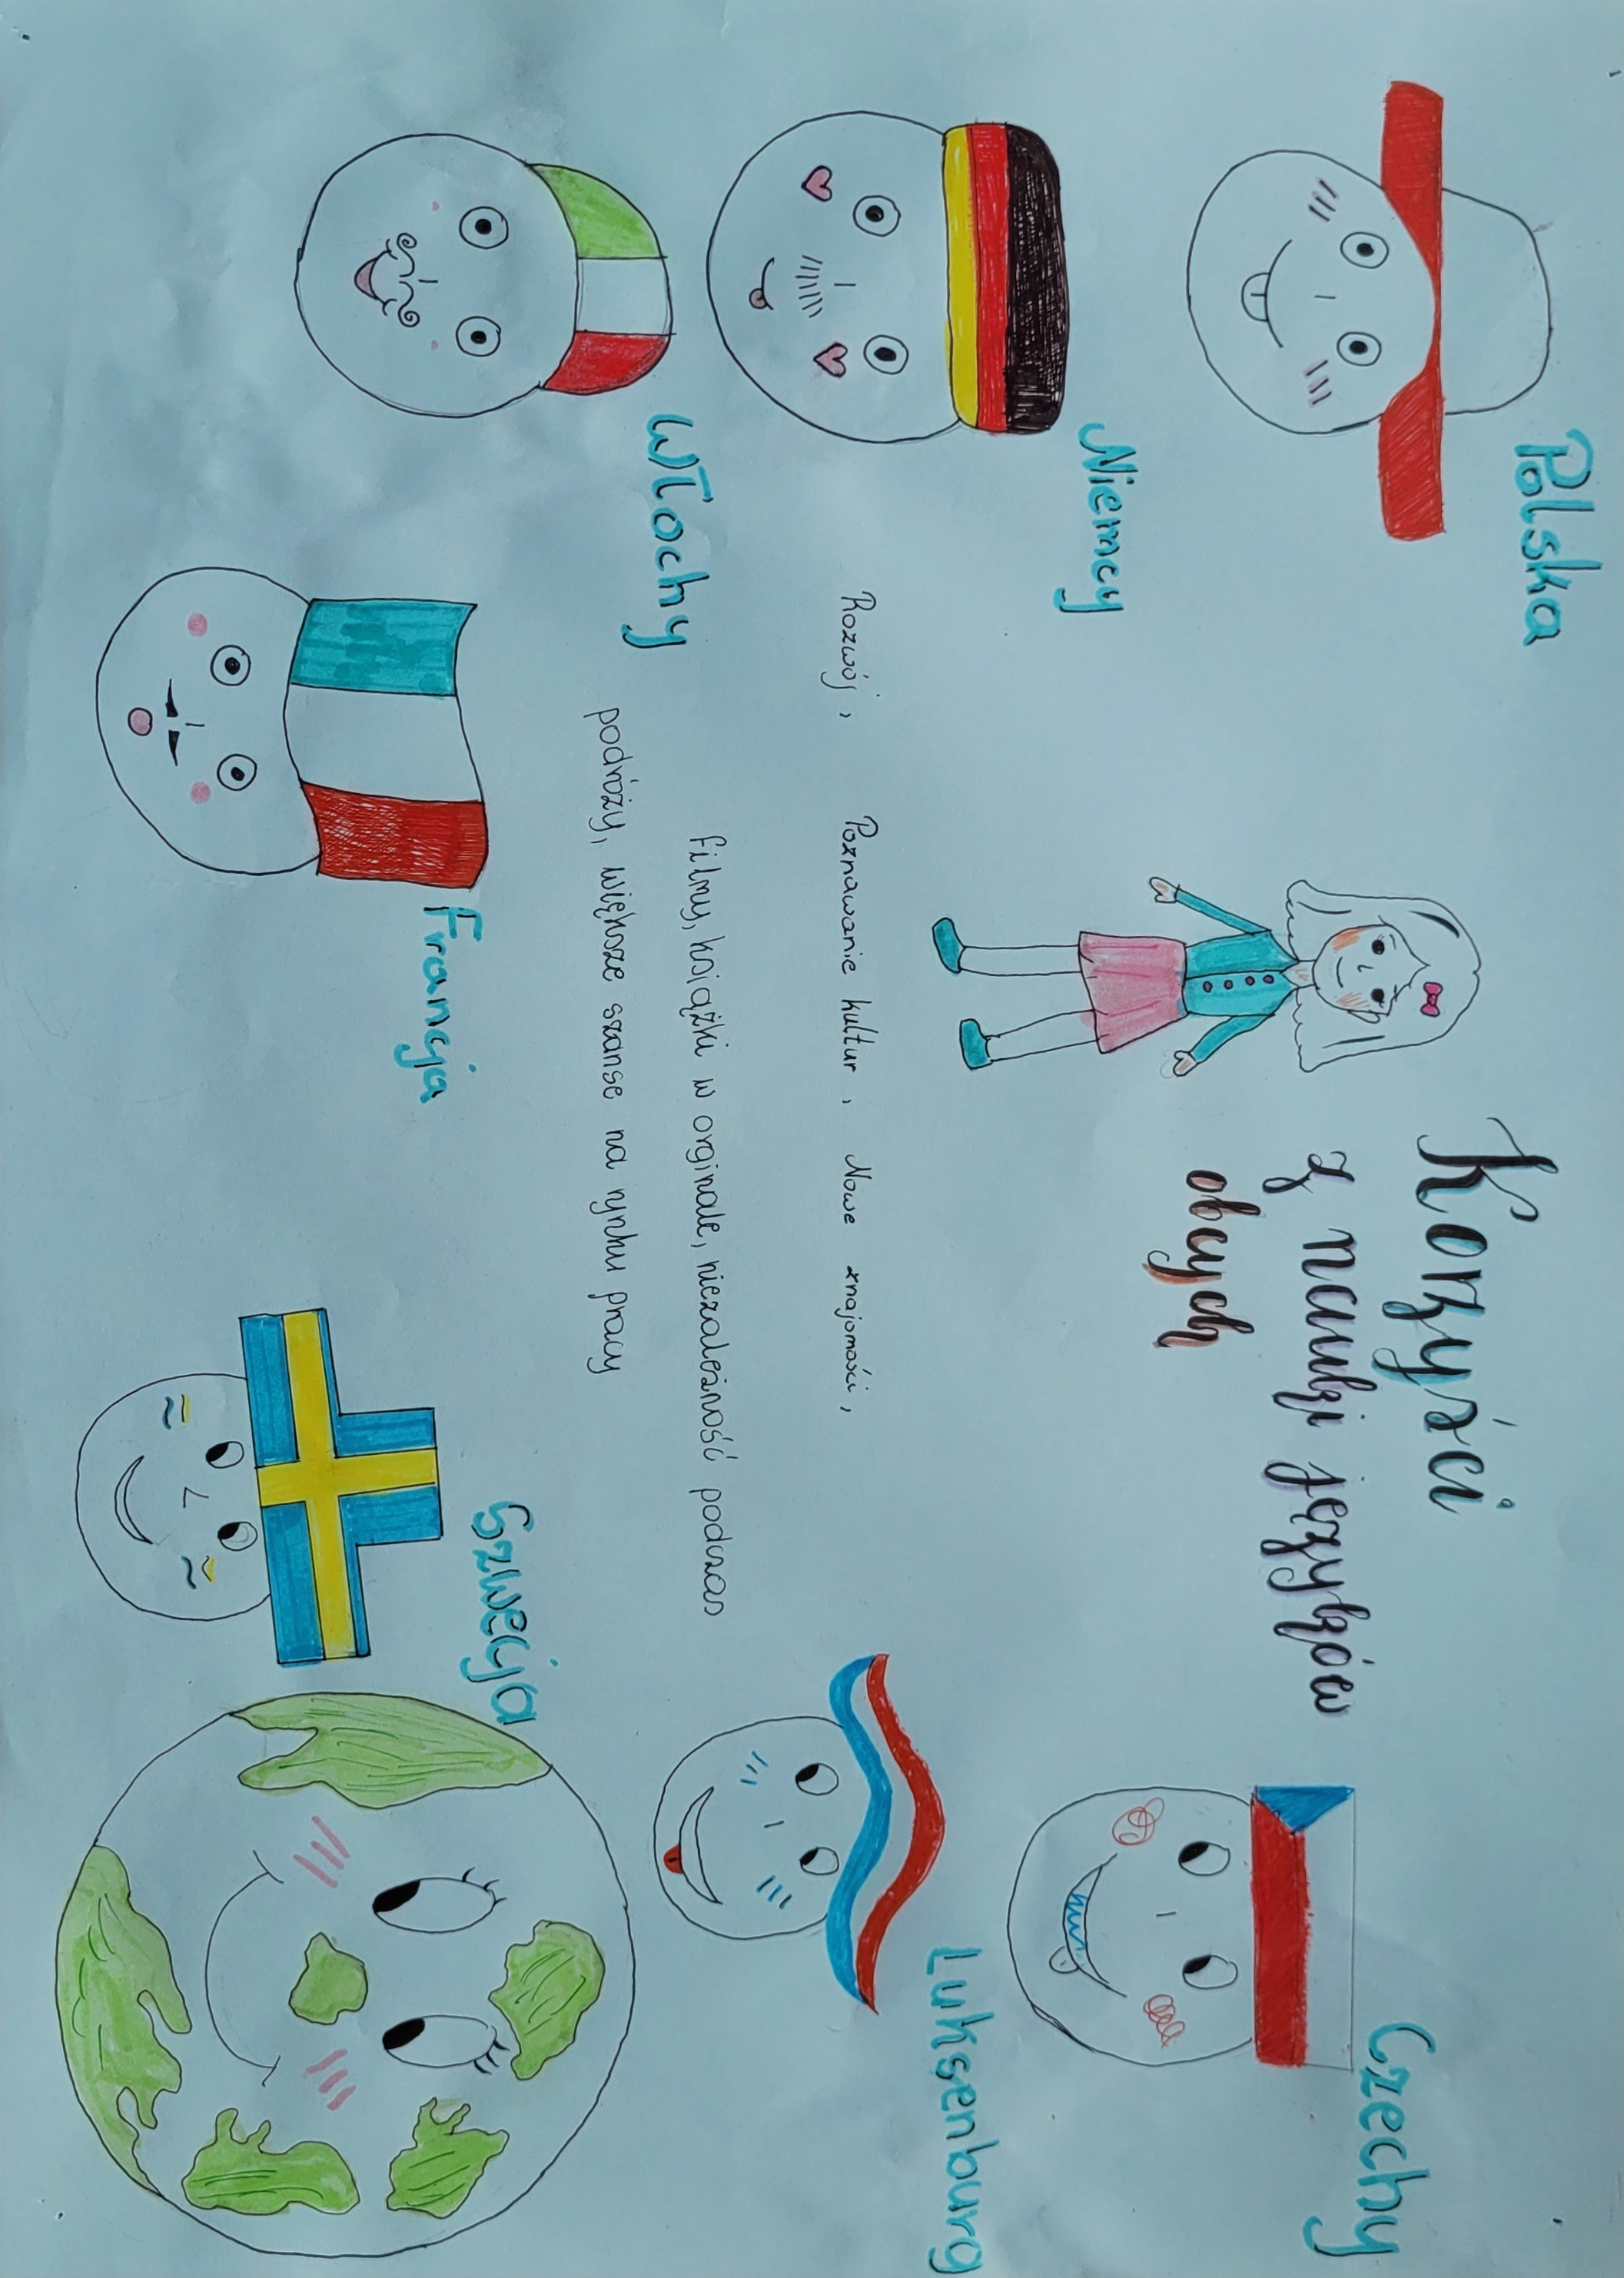 Korzyści
z nauki języków
obcych
Polska
Niemcy
Włochy
Francja
Szwecja
Luksenburg
Czechy
Rozwój, Poznawanie kultur, Nowe znajomości,
filmy, książki w orginale, niezależność podczas
podróży, większe szanse na rynku pracy